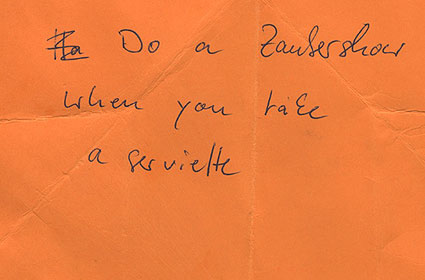 Do a Zaubershow
when you take
a serviette